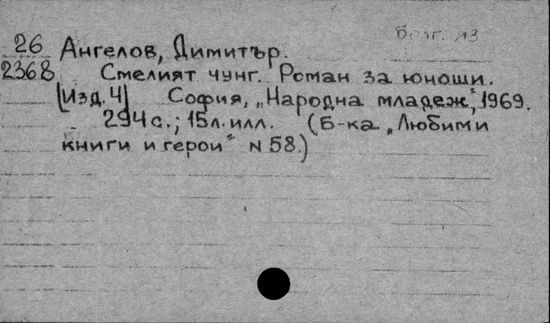 болг. яз
26 Ангелов, Димитър.
2368 Смелият чунг. Роман за юноши.
[Изд. 4] София, „Народна младеж", 1969.
294 с.; 15 л. илл. (Б-ка „Любими
книги и герои" N 58.)